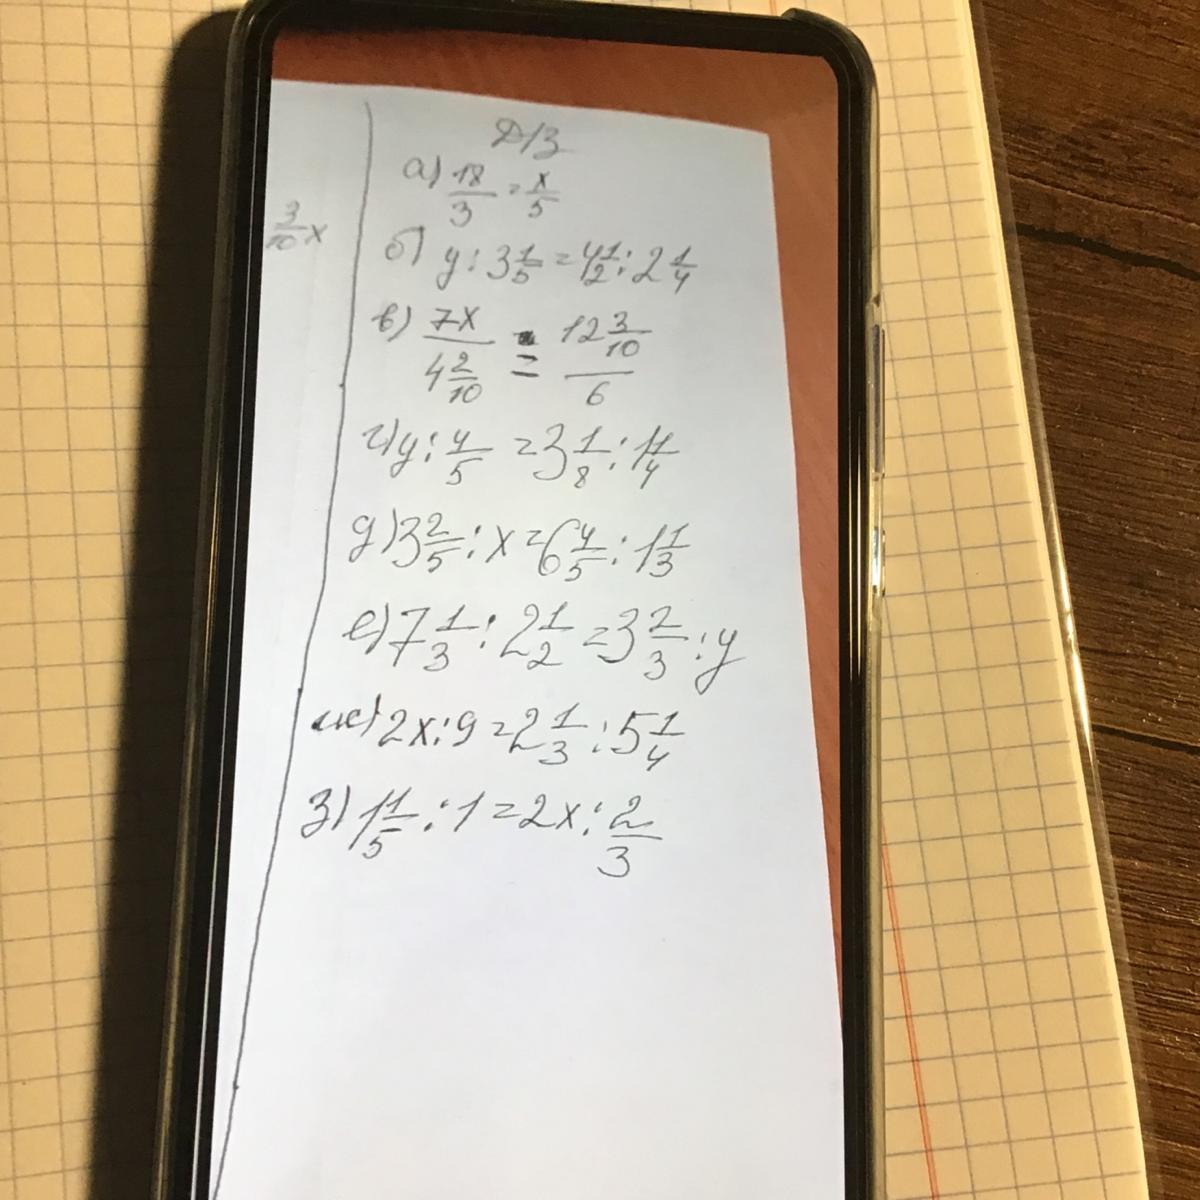 Д/З
а) 18/3 = x/5
3/10 x
б) y : 3 1/5 = 4 1/2 : 2 1/4
в) 7x / 4 2/10 = 12 3/10 / 6
г) y : 4/5 = 3 1/8 : 1 1/4
д) 3 2/5 : x = 6 4/5 : 1 1/3
е) 7 1/3 : 2 1/2 = 3 2/3 : y
ж) 2x : 9 = 2 1/3 : 5 1/4
з) 1 1/5 : 1 = 2x : 2/3